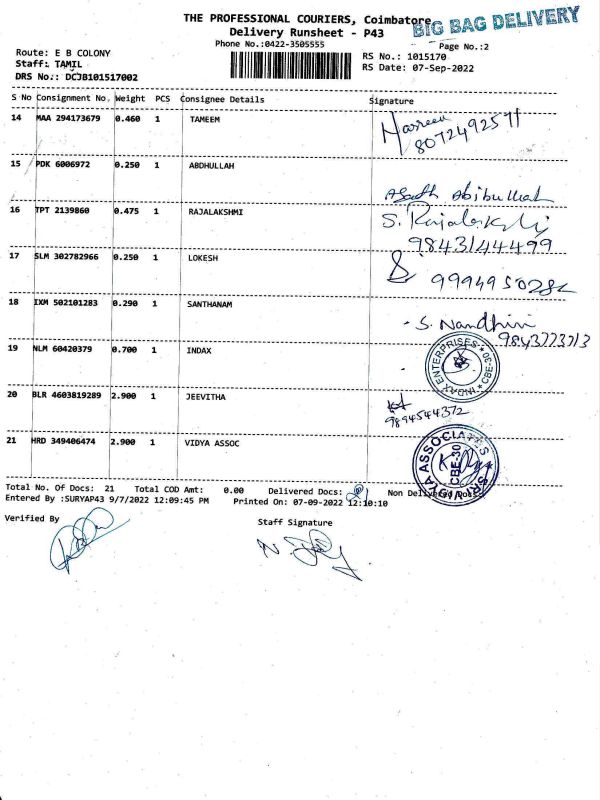 THE PROFESSIONAL COURIERS, Coimbatore
BIG BAG DELIVERY
Delivery Runsheet - P43
Phone No.:0422-3505555
Page No.:2
Route: E B COLONY
RS No.: 1015170
Staff: TAMIL
RS Date: 07-Sep-2022
DRS No.: DCJB101517002
S No Consignment No. Weight PCS Consignee Details Signature
14 MAA 294173679 0.460 1 TAMEEM
Nasreen
8072492571
15 PDK 6006972 0.250 1 ABDHULLAH
Abibullah
16 TPT 2139860 0.475 1 RAJALAKSHMI
S. Rajalakshmi
9843144499
17 SLM 302782966 0.250 1 LOKESH
9994950282
18 IXM 502101283 0.290 1 SANTHANAM
S. Nandhini
9843773713
19 NLM 60420379 0.700 1 INDAX
INDAX ENTERPRISES CBE-30
20 BLR 4603819289 2.900 1 JEEVITHA
9894544372
21 HRD 349406474 2.900 1 VIDYA ASSOC
VIDYA ASSOCIATES CBE-30
Total No. Of Docs: 21 Total COD Amt: 0.00 Delivered Docs: 21 Non Delivered Docs:
Entered By :SURYAP43 9/7/2022 12:09:45 PM Printed On: 07-09-2022 12:10:10
Verified By
Staff Signature